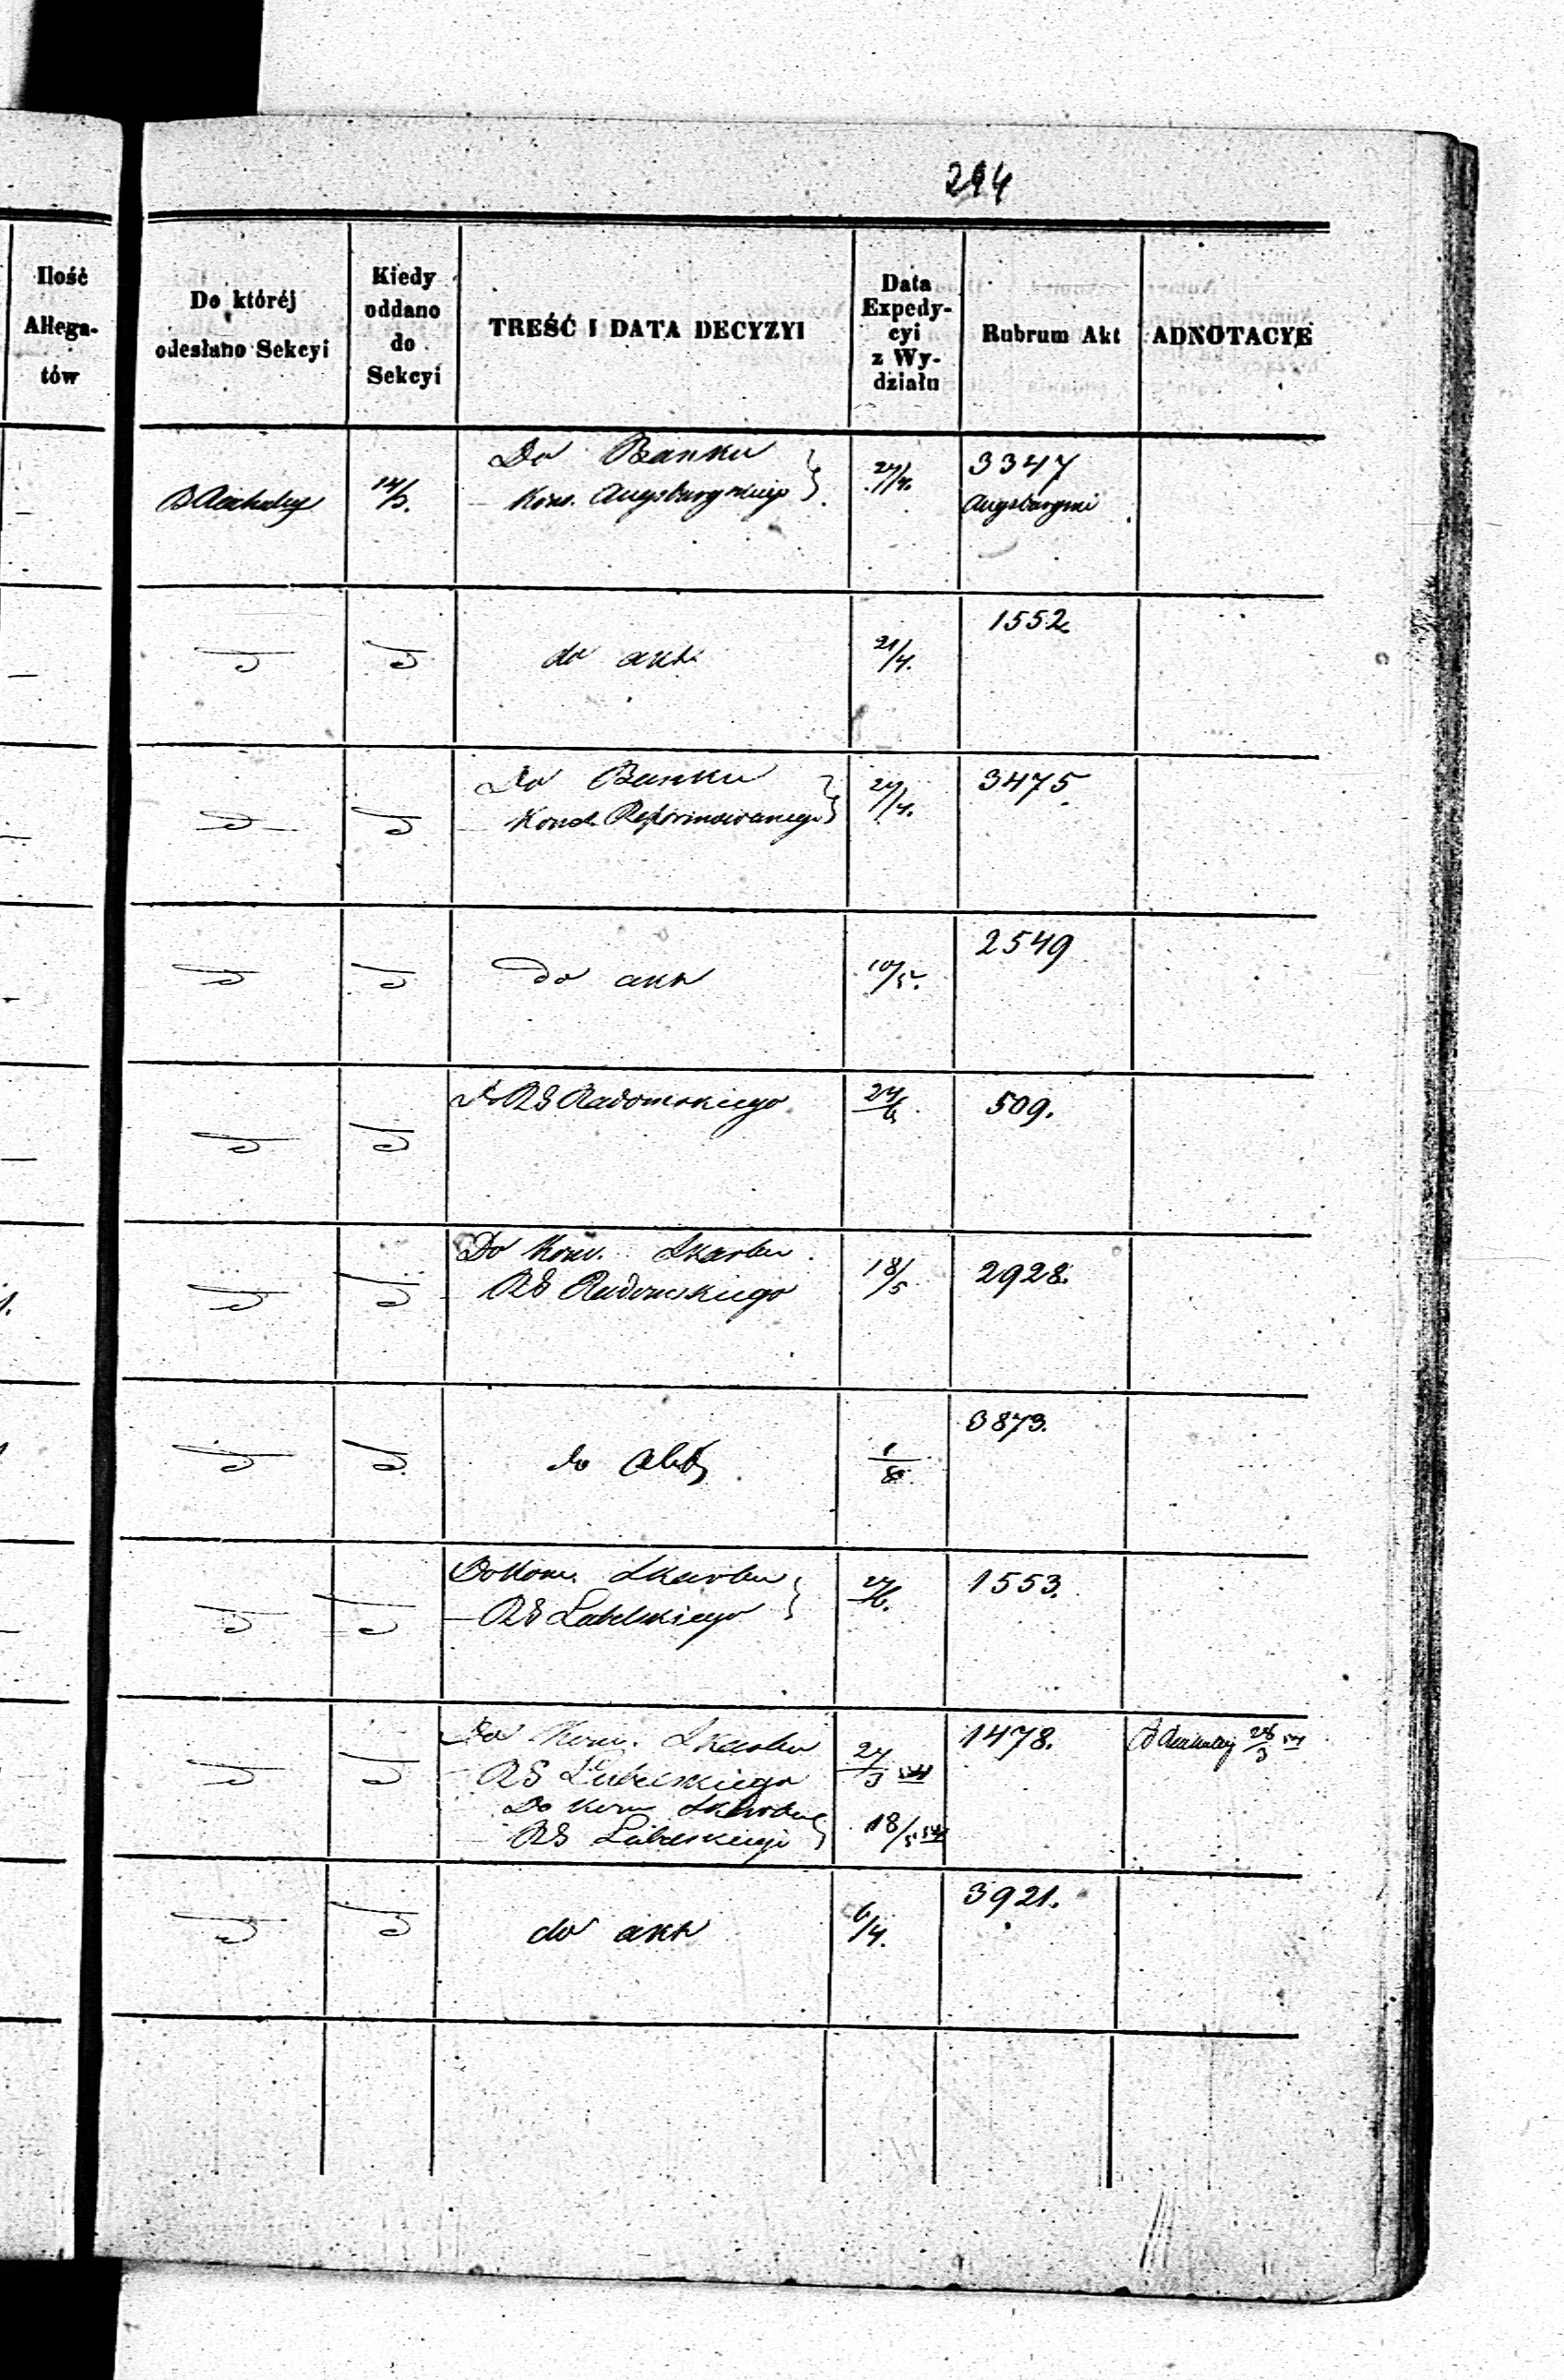 294
Ilość
Allega-
tów
Do któréj
odesłano Sekcyi
Kiedy
oddano
do
Sekcyi
TREŚĆ I DATA DECYZYI
Data
Expedy-
cyi
z Wy-
działu
Rubrum Akt
ADNOTACYE
14/3.
Do Banku
Kons. Augsburgskiego
24/4.
3347
Augsburgski
do akt
21/4.
1552
Do Banku
Konst. Reformowanego
24/4.
3475
do akt
10/5.
2549
do RG Radomskiego
24/6
509.
Do Kom. Skarbu
RG Radomskiego
18/5
2928.
do akt
1/8
3873.
Do Kom. Skarbu
RG Lubelskiego
1553.
Do Kom. Skarbu
RG Lubelskiego
Do Kom Skarbu
RG Lubelskiego
27/3
18/5
1478.
28/3
do akt
6/4.
3921.